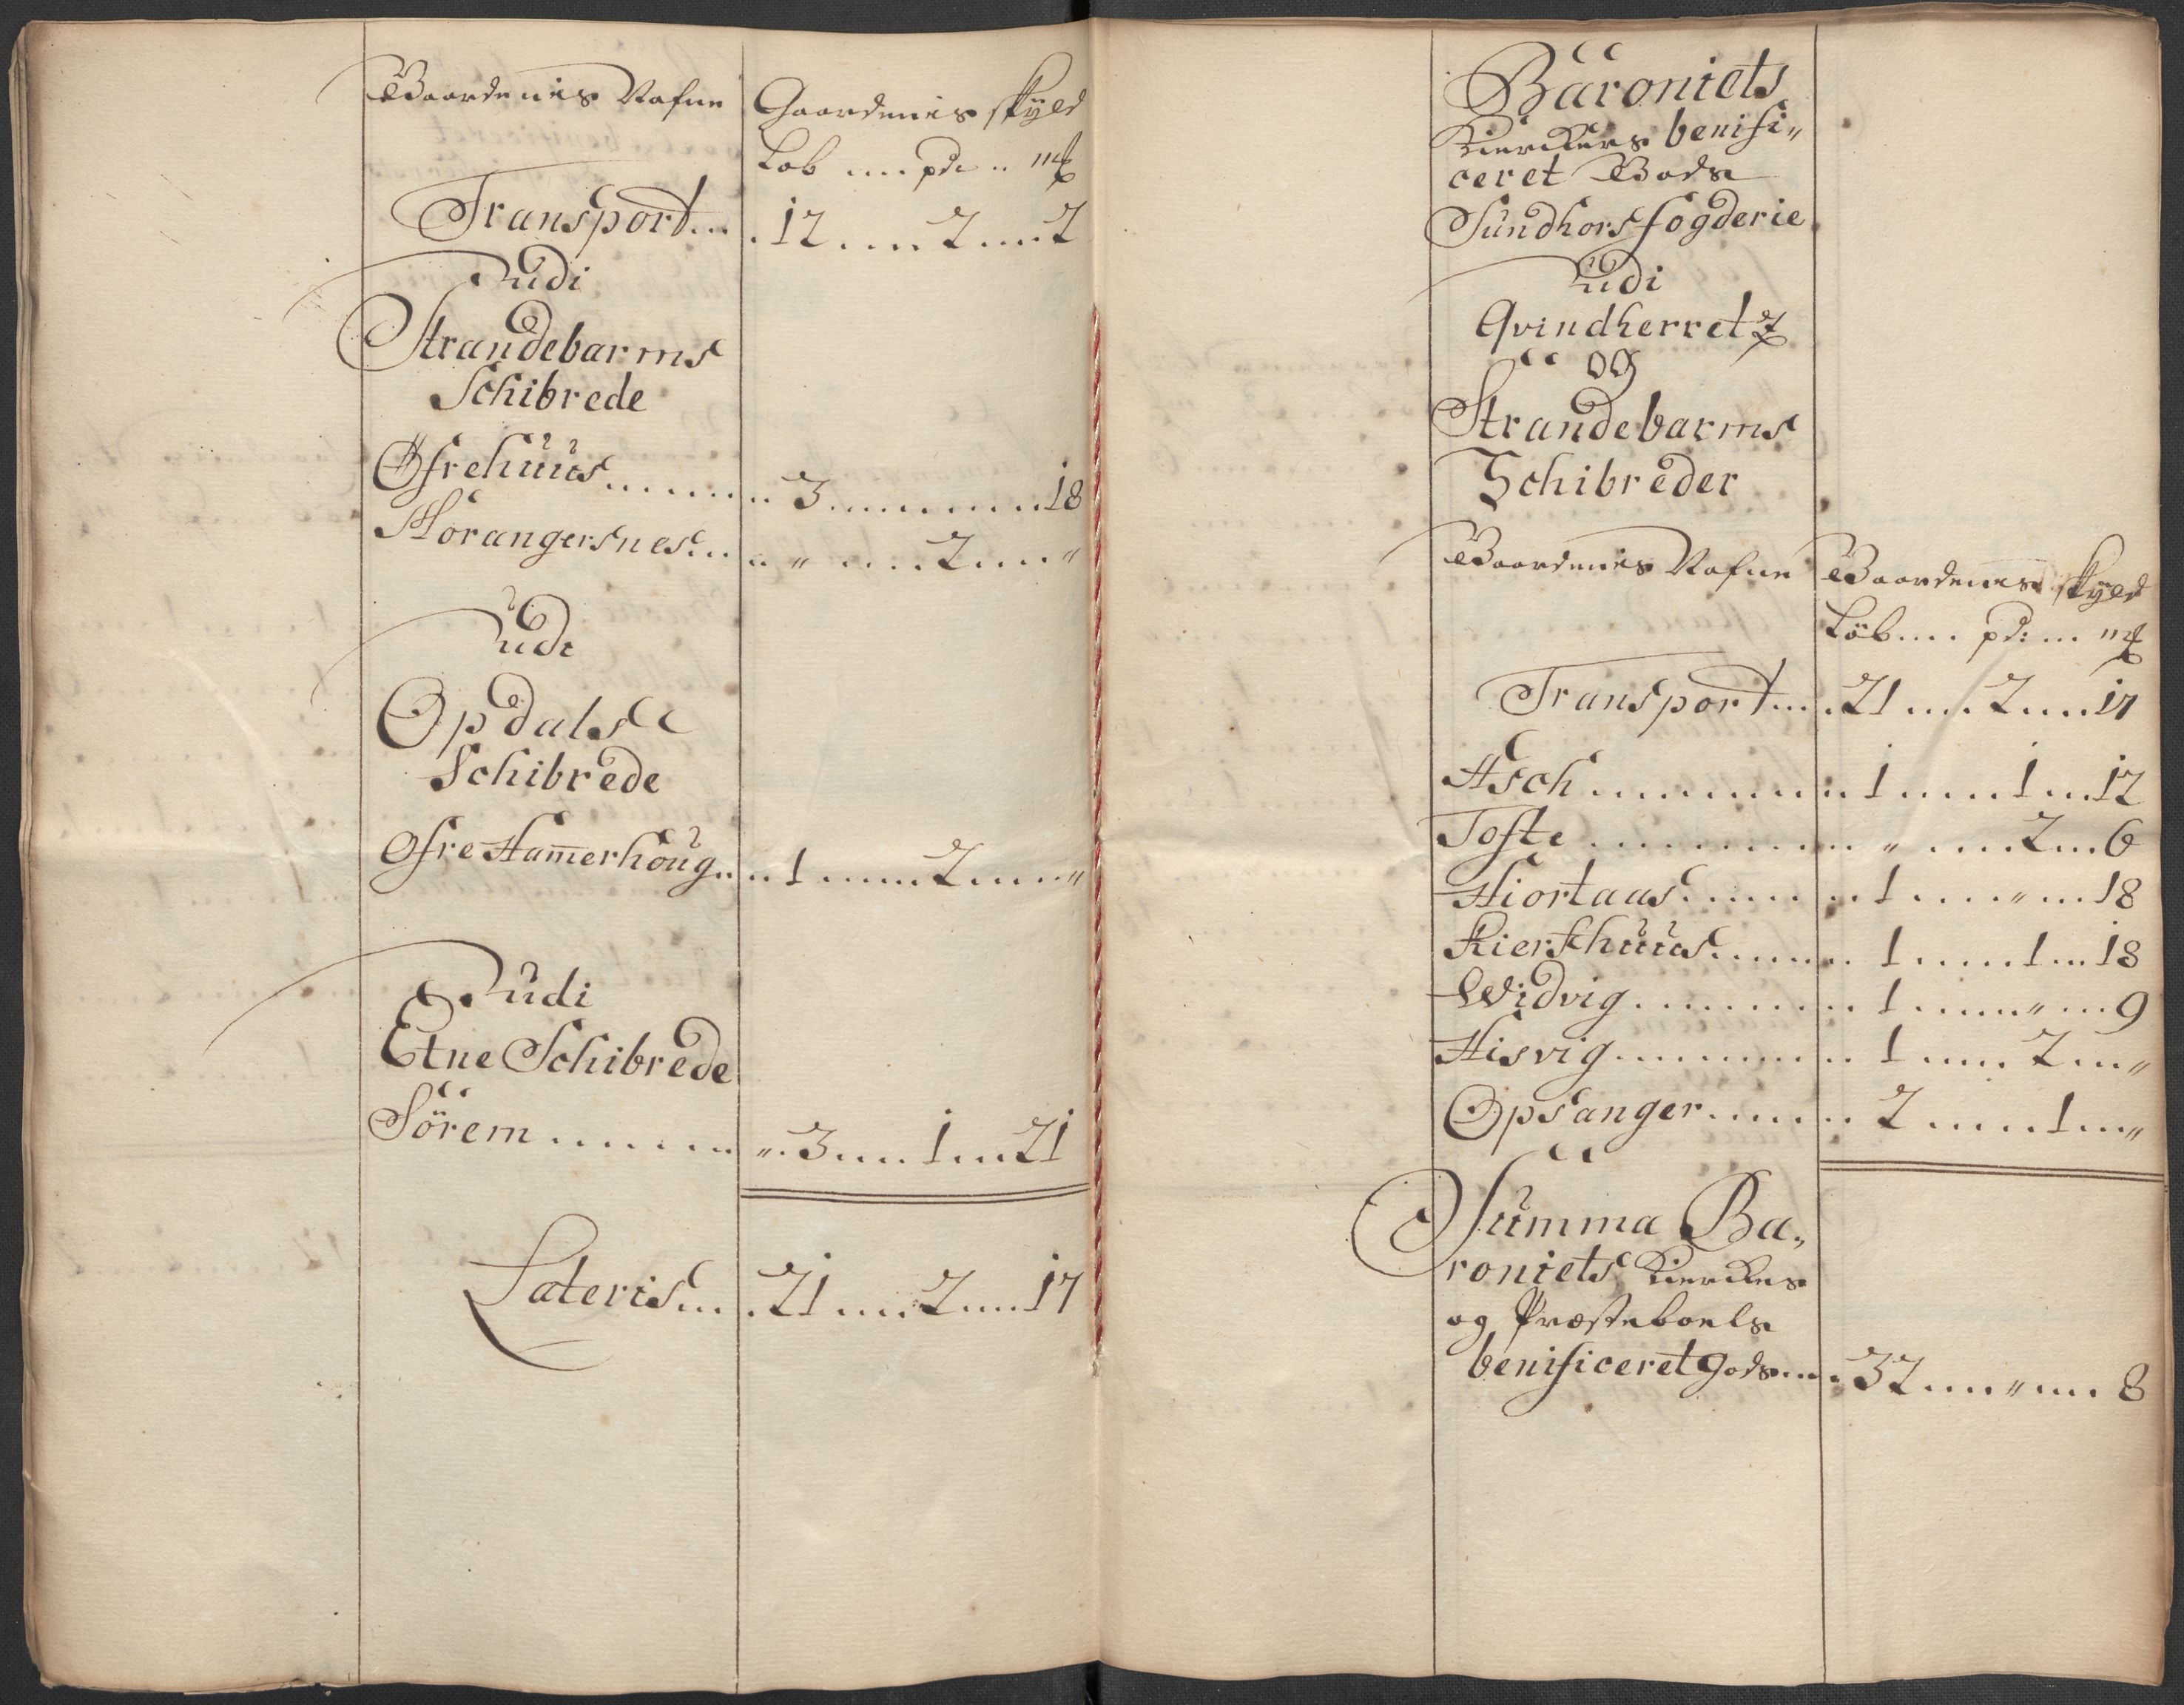 Gaardenis Nafne
Gaardenis skyld
Lob .... pd: .. m℔
Transport... . 12 .... 2 .... 2
Udi
Strandebarms
Schibrede
Øfrehuus ....... 3 ......... 18
Storangersnes ... " ..... 2 .... "
Udi
Opdals
Schibrede
Ofre Ham̄erhoug .. 1 ...... 2 ..... "
Udi
Etne Schibrede
Sörem ....... 3 .... 1 ... 21
Lateris ... 21 .... 2 .... 17
Baroniets
Kierkers benifi„
ceret Gods
Sundhors fogderie
Udi
Qvindherret z
og
Strandebarms
Schibreder
Gaardenis Nafne
Gaardenis skyld
Löb .... pd: ... m℔
Transport ... 21 .... 2 .... 17
Asch ......... 1 ..... 1 ... 12
Tofte ......... " ..... 2 ... 6
Hiortaas ....... 1 ..... " ... 18
Kierfhuus ....... 1 ..... 1 ... 18
Widvig ......... 1 ...... " ... 9
Hisvig ......... 1 ..... 2 ... "
Opsanger ....... 2 ...... 1 ... "
Summa Ba„
roniets Kierkes
og Præsteboels
benificeret gods .... 32 .... " .... 8